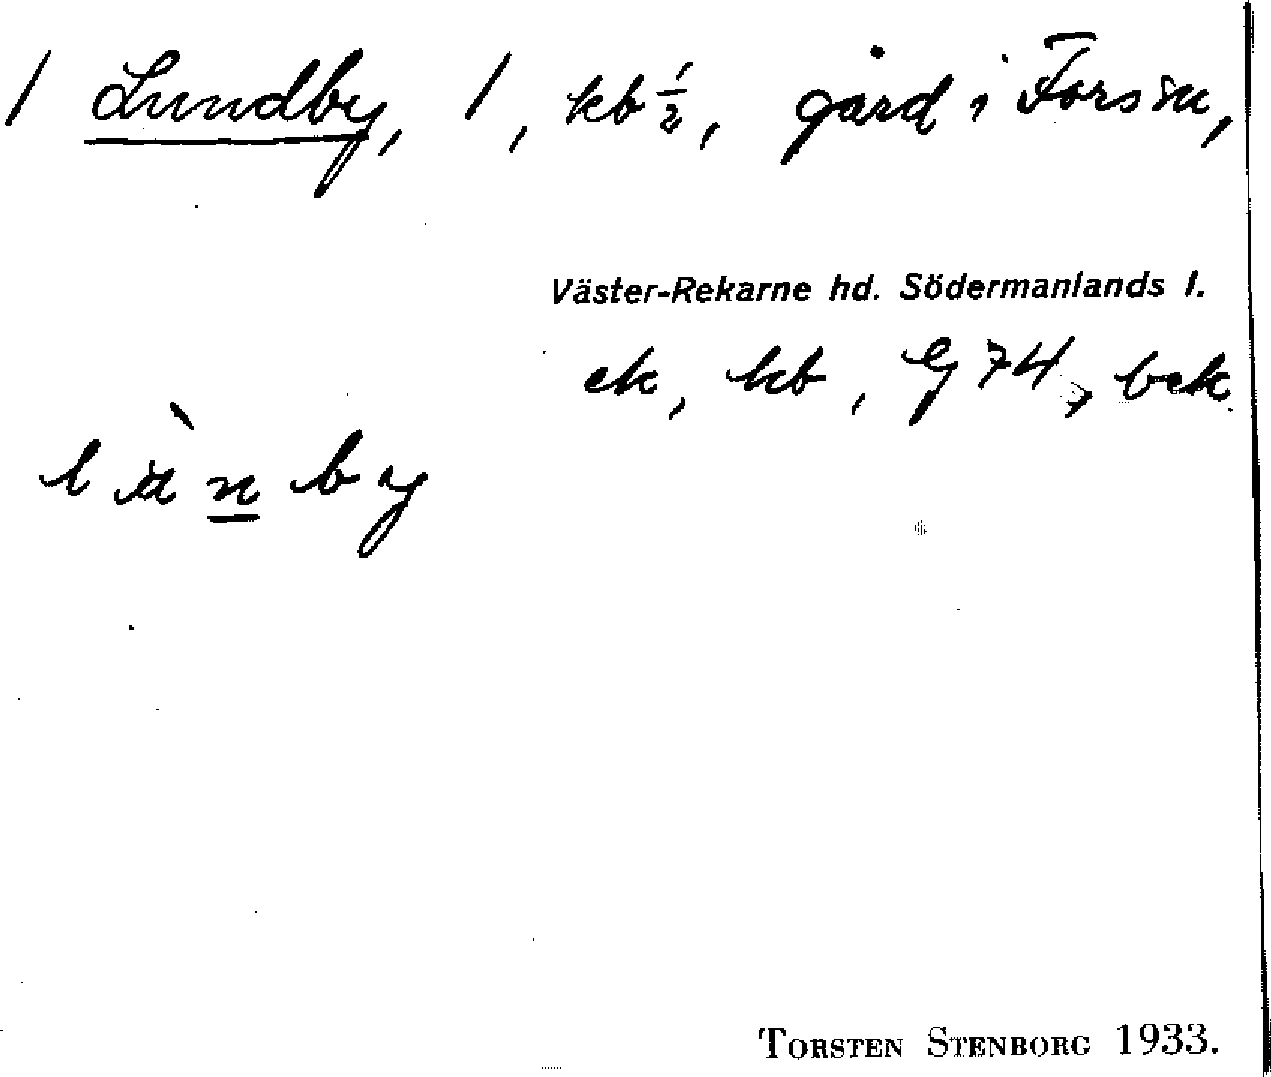 / Lundby, /, kb ½, gård i Fors sn,
Väster-Rekarne hd. Södermanlands l.
ek, kb, G 74, bek.
TORSTEN STENBORG 1933.